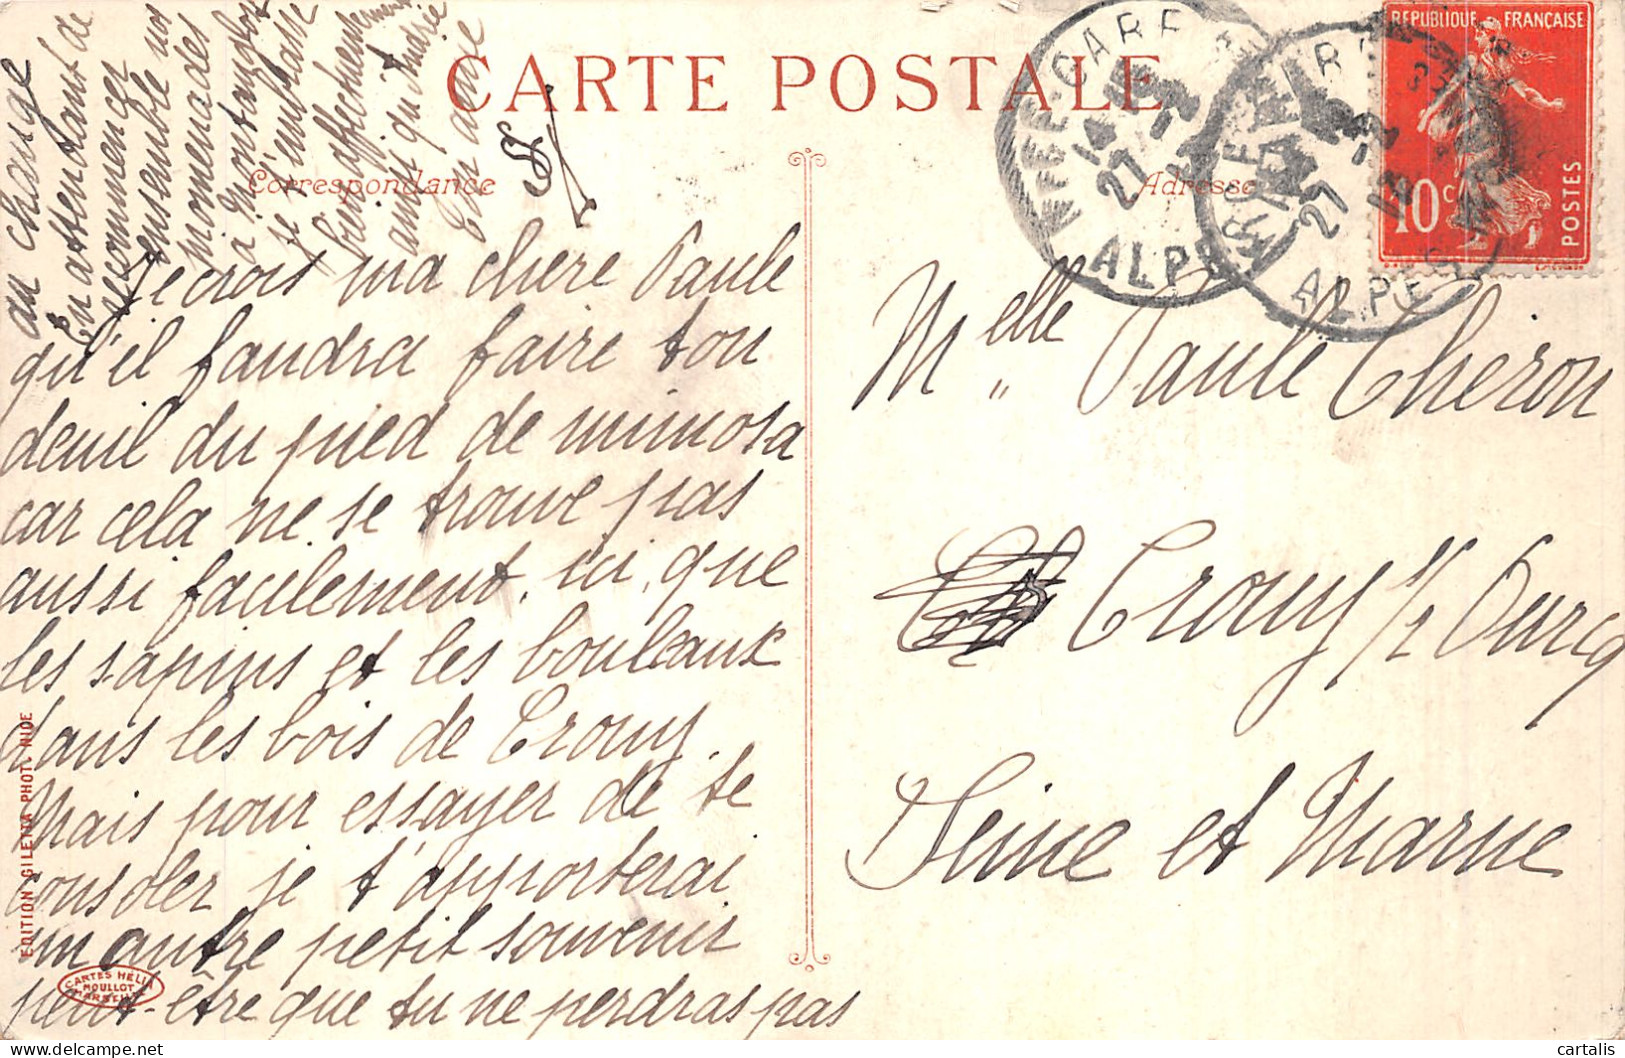 CARTE POSTALE
Correspondance
Adresse
REPUBLIQUE FRANÇAISE
10 c
POSTES
GARE
14
27
ALPES
27
12
ALPES
Je crois ma chère Paule
qu'il faudra faire ton
deuil du pied de mimosa
car cela ne se trouve pas
aussi facilement ici, que
les sapins et les bouleaux
dans les bois de Crouy.
Mais pour essayer de te
consoler je t'apporterai
un autre petit souvenir
peut-être que tu ne perdras pas
au change
En attendant de
recommencer
ensemble nos
promenades
à Montanglos
je t'embrasse
bien affectueusement
ainsi qu'Andrée
Ton amie
Melle Paule Cheron
Crouy s/ Ourcq
Seine et Marne
EDITION GILETTA PHOT. NICE
CARTES HELIA
MOULLOT
MARSEILLE
cartalis